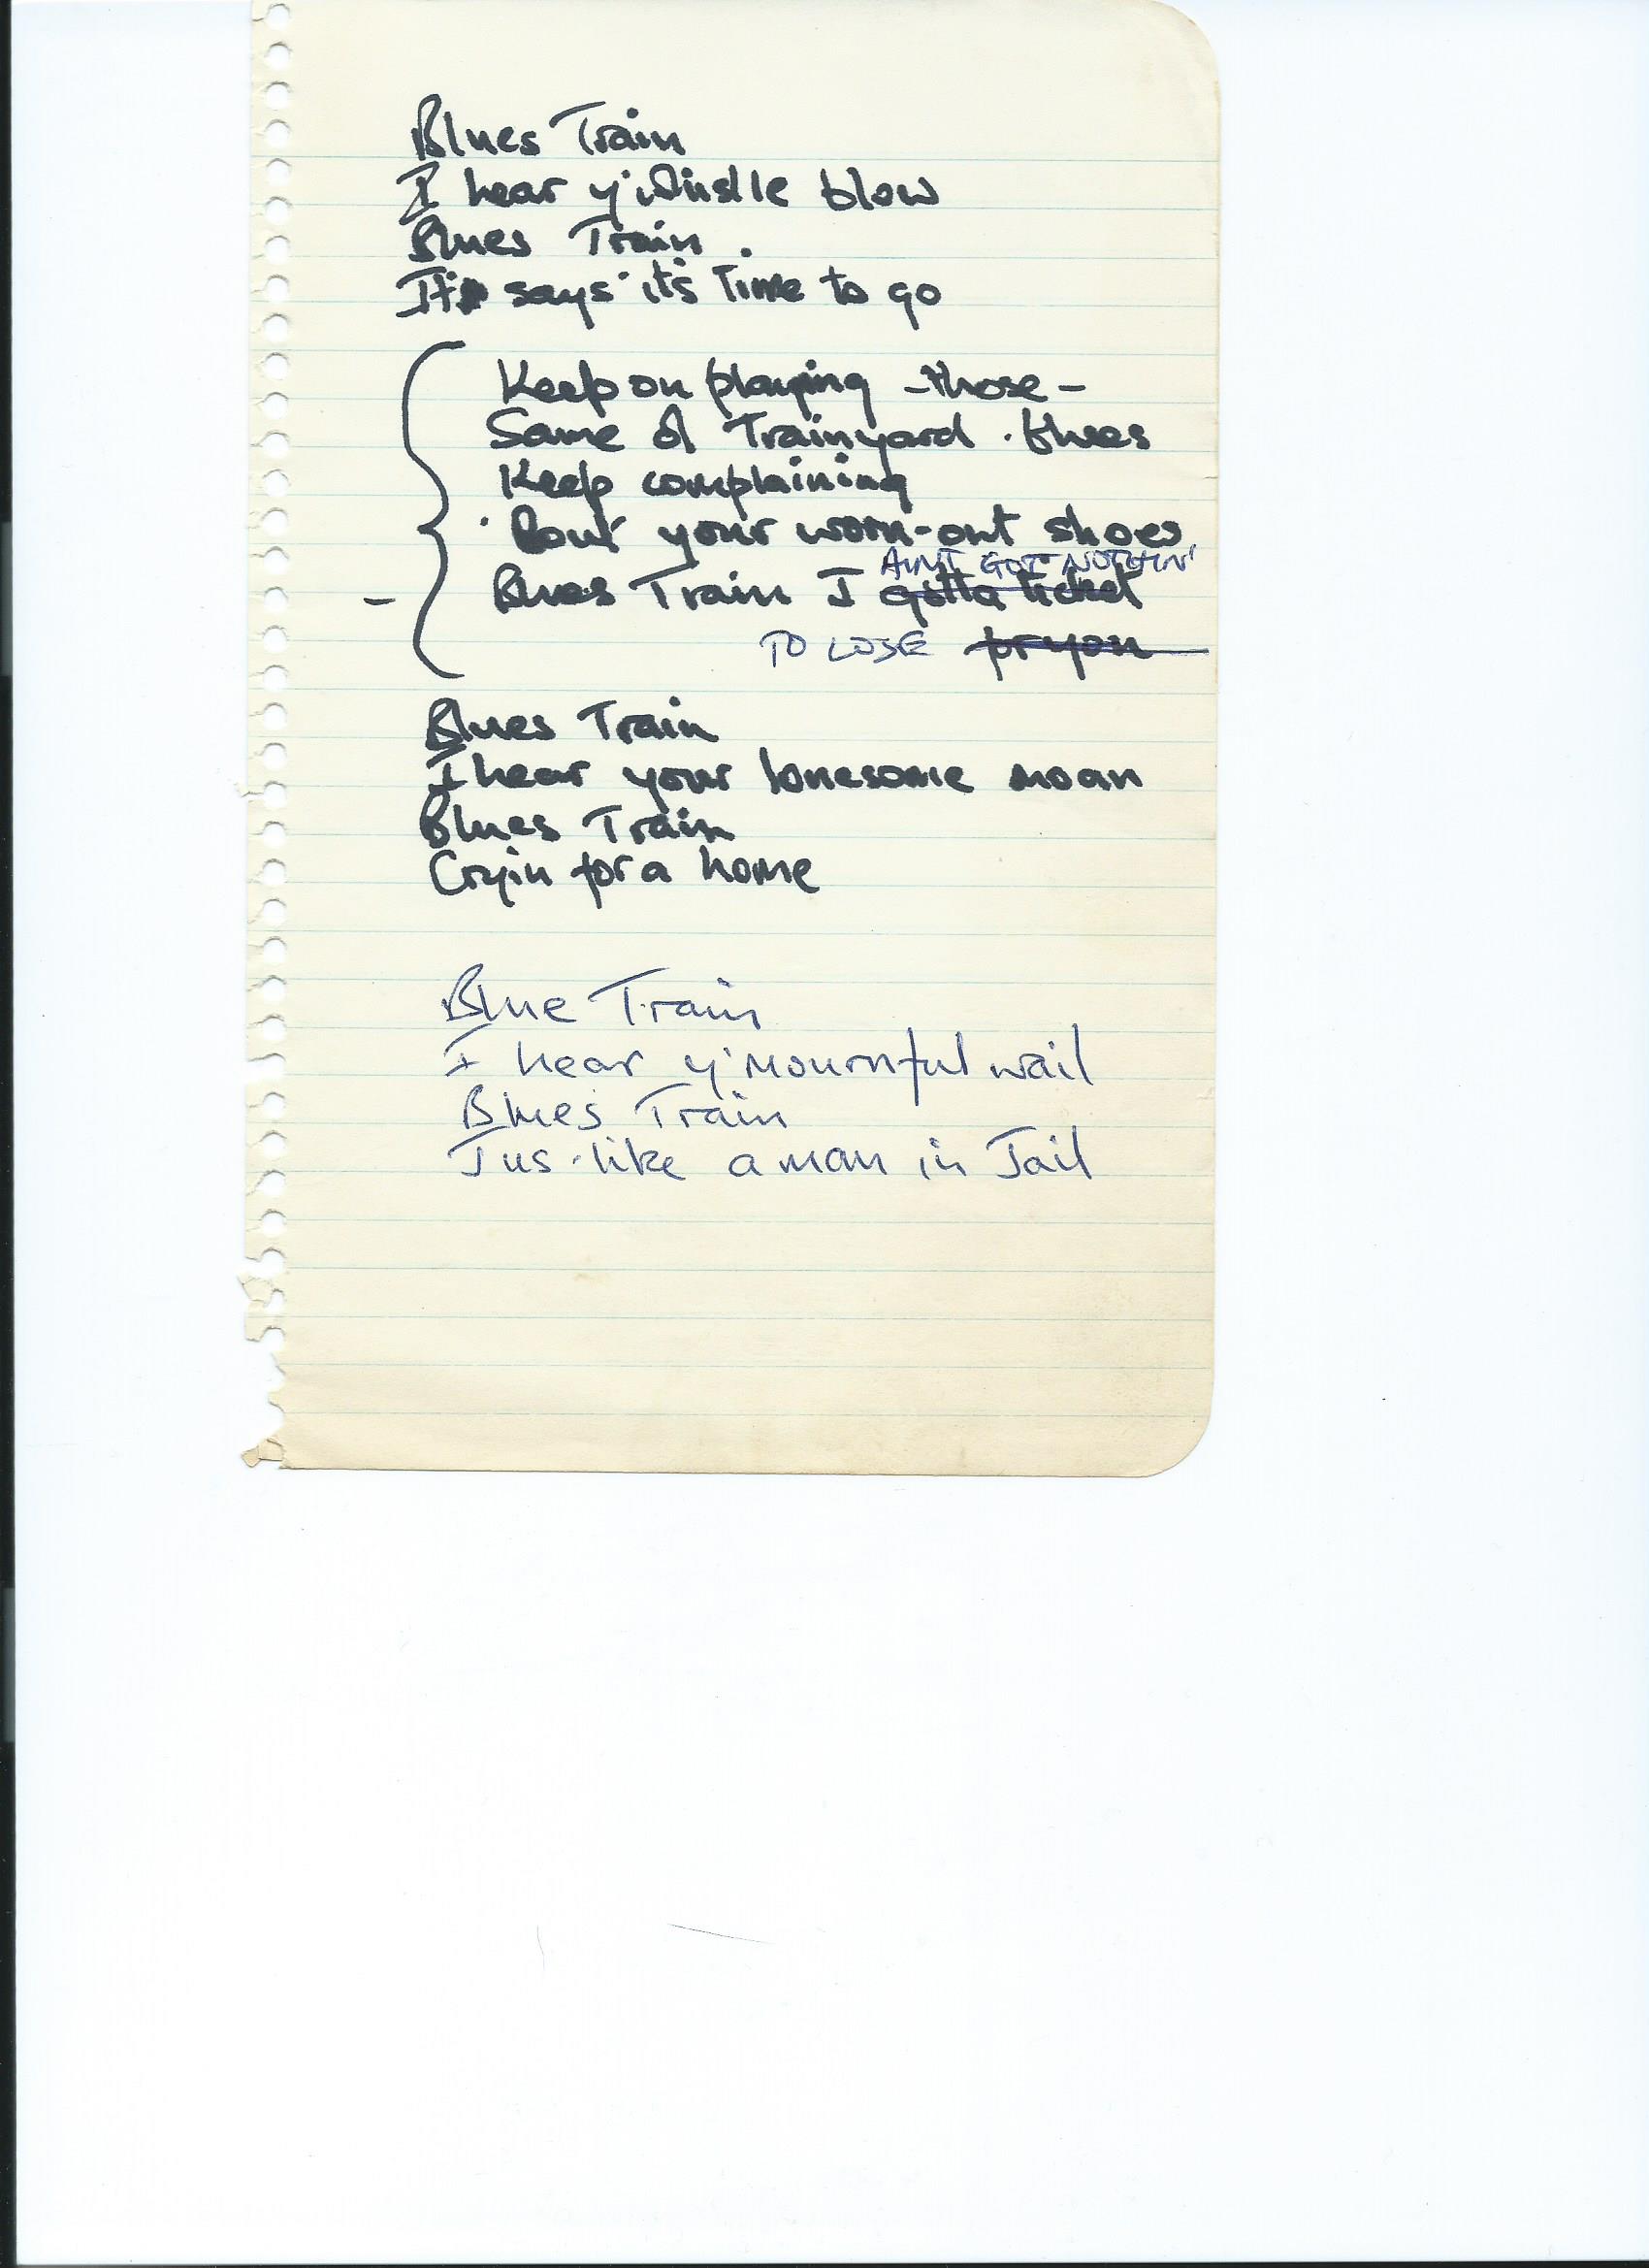 Blues Train
I hear y' whistle blow
Blues Train
It says it's Time to go
Keep on playing - those -
Same ol Trainyard blues
Keep complaining
'Bout your worn-out shoes
AIN'T GOT NOTHIN'
Blues Train I gotta ticket
TO LOSE for you
Blues Train
I hear your lonesome moan
Blues Train
Cryin for a home
Blue Train
I hear y' mournful wail
Blues Train
Jus like a man in Jail